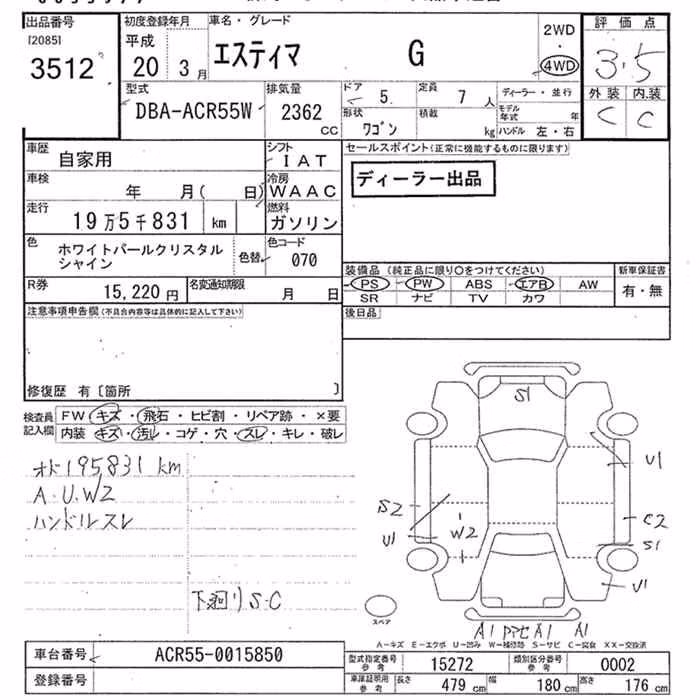 出品番号
[2085]
3512
初度登録年月
平成
20 3月
車名・グレード
エスティマ G
2WD
・
4WD
評価点
3.5
外装 内装
C C
型式
DBA-ACR55W
排気量
2362
cc
ドア
5
定員
7 人
ディーラー・並行
形状
ワゴン
積載
kg
モデル年式 年
ハンドル 左・右
車歴
自家用
シフト
IAT
車検
年 月( 日)
冷房
WAAC
走行
19万5千831 km
燃料
ガソリン
色
ホワイトパールクリスタル
シャイン
色替
色コード
070
R券
15,220円
名変通知期限
月 日
セールスポイント(正常に機能するものに限ります)
ディーラー出品
装備品(純正品に限り○をつけてください)
PS PW ABS エアB AW
SR ナビ TV カワ
新車保証書
有・無
後日品
注意事項申告欄(不具合内容等は具体的に記入して下さい)
修復歴 有〔箇所 〕
検査員
記入欄
FW キズ・飛石・ヒビ割・リペア跡・×要
内装 キズ・汚レ・コゲ・穴・スレ・キレ・破レ
オド195831 km
A.U.W2
ハンドルスレ
下廻りS.C
S1
U1
S2
U1
W2
C2
S1
U1
スペア
A1 リアマセA1 A1
A-キズ E-エクボ U-凹み W-補修跡 S-サビ C-腐食 XX-交換済
車台番号
ACR55-0015850
登録番号
型式指定番号
参考
15272
類別区分番号
参考
0002
車庫証明用
参考
長さ
479 cm
幅
180 cm
高さ
176 cm